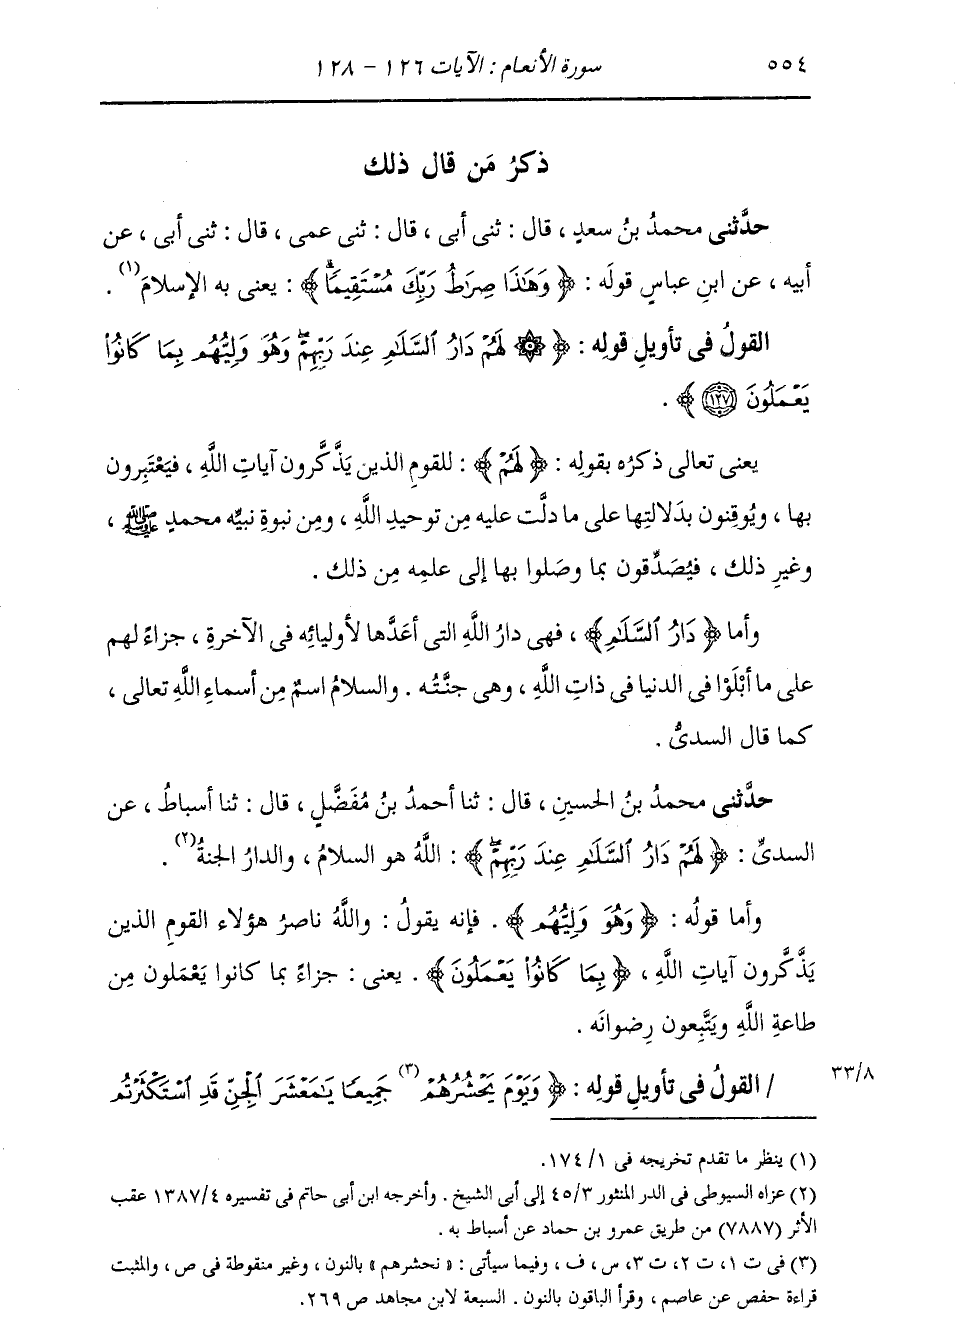 ٥٥٤ سورة الأنعام : الآيات ١٢٦ - ١٢٨
ذكرُ مَن قال ذلك
حدَّثنى محمدُ بنُ سعدٍ ، قال : ثنى أبى ، قال : ثنى عمى ، قال : ثنى أبى ، عن
أبيه ، عن ابنِ عباسٍ قولَه : ﴿ وَهَٰذَا صِرَٰطُ رَبِّكَ مُسْتَقِيمًا ﴾ : يعنى به الإسلامَ(١) .
القولُ فى تأويلِ قولِه : ﴿ ۞ لَهُمْ دَارُ ٱلسَّلَٰمِ عِندَ رَبِّهِمْ ۖ وَهُوَ وَلِيُّهُم بِمَا كَانُوا۟
يَعْمَلُونَ ١٢٧ ﴾ .
يعنى تعالى ذكرُه بقولِه : ﴿ لَهُمْ ﴾ : للقومِ الذين يَذَّكَّرون آياتِ اللَّهِ ، فيَعْتَبِرون
بها ، ويُوقِنون بدَلالتِها على ما دلَّت عليه مِن توحيدِ اللَّهِ ، ومِن نبوةِ نبيِّه محمدٍ ﷺ ،
وغيرِ ذلك ، فيُصَدِّقون بما وصَلوا بها إلى علمِه مِن ذلك .
وأما ﴿ دَارُ ٱلسَّلَٰمِ ﴾ ، فهى دارُ اللَّهِ التى أعَدَّها لأوليائِه فى الآخرةِ ، جزاءً لهم
على ما أبْلَوْا فى الدنيا فى ذاتِ اللَّهِ ، وهى جنَّتُه . والسلامُ اسمٌ مِن أسماءِ اللَّهِ تعالى ،
كما قال السدىُّ .
حدَّثنى محمدُ بنُ الحسينِ ، قال : ثنا أحمدُ بنُ مُفَضَّلٍ ، قال : ثنا أسباطُ ، عن
السدىِّ : ﴿ لَهُمْ دَارُ ٱلسَّلَٰمِ عِندَ رَبِّهِمْ ۖ ﴾ : اللَّهُ هو السلامُ ، والدارُ الجنةُ(٢) .
وأما قولُه : ﴿ وَهُوَ وَلِيُّهُم ﴾ . فإنه يقولُ : واللَّهُ ناصرُ هؤلاء القومِ الذين
يَذَّكَّرون آياتِ اللَّهِ ، ﴿ بِمَا كَانُوا۟ يَعْمَلُونَ ﴾ . يعنى : جزاءً بما كانوا يَعْمَلون مِن
طاعةِ اللَّهِ ويَتَّبِعون رِضوانَه .
٣٣/٨ / القولُ فى تأويلِ قولِه : ﴿ وَيَوْمَ يَحْشُرُهُمْ(٣) جَمِيعًا يَٰمَعْشَرَ ٱلْجِنِّ قَدِ ٱسْتَكْثَرْتُم
(١) ينظر ما تقدم تخريجه فى ١/ ١٧٤.
(٢) عزاه السيوطى فى الدر المنثور ٤٥/٣ إلى أبى الشيخ . وأخرجه ابن أبى حاتم فى تفسيره ١٣٨٧/٤ عقب
الأثر (٧٨٨٧) من طريق عمرو بن حماد عن أسباط به .
(٣) فى ت ١، ت ٢، ت ٣، س ، ف ، وفيما سيأتى : « نحشرهم » بالنون ، وغير منقوطة فى ص ، والمثبت
قراءة حفص عن عاصم ، وقرأ الباقون بالنون . السبعة لابن مجاهد ص ٢٦٩.